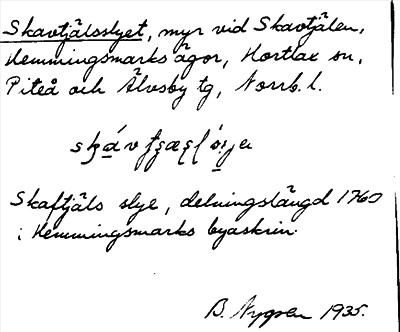 Skavtjälsslyet, myr vid Skavtjälen,
Hemmingsmarks ägor, Hortlax sn,
Piteå och Älvsby tg, Norrb. l.
Skaftjäls slye, delningslängd 1760
i Hemmingsmarks byaskrin.
B. Nygren 1935.